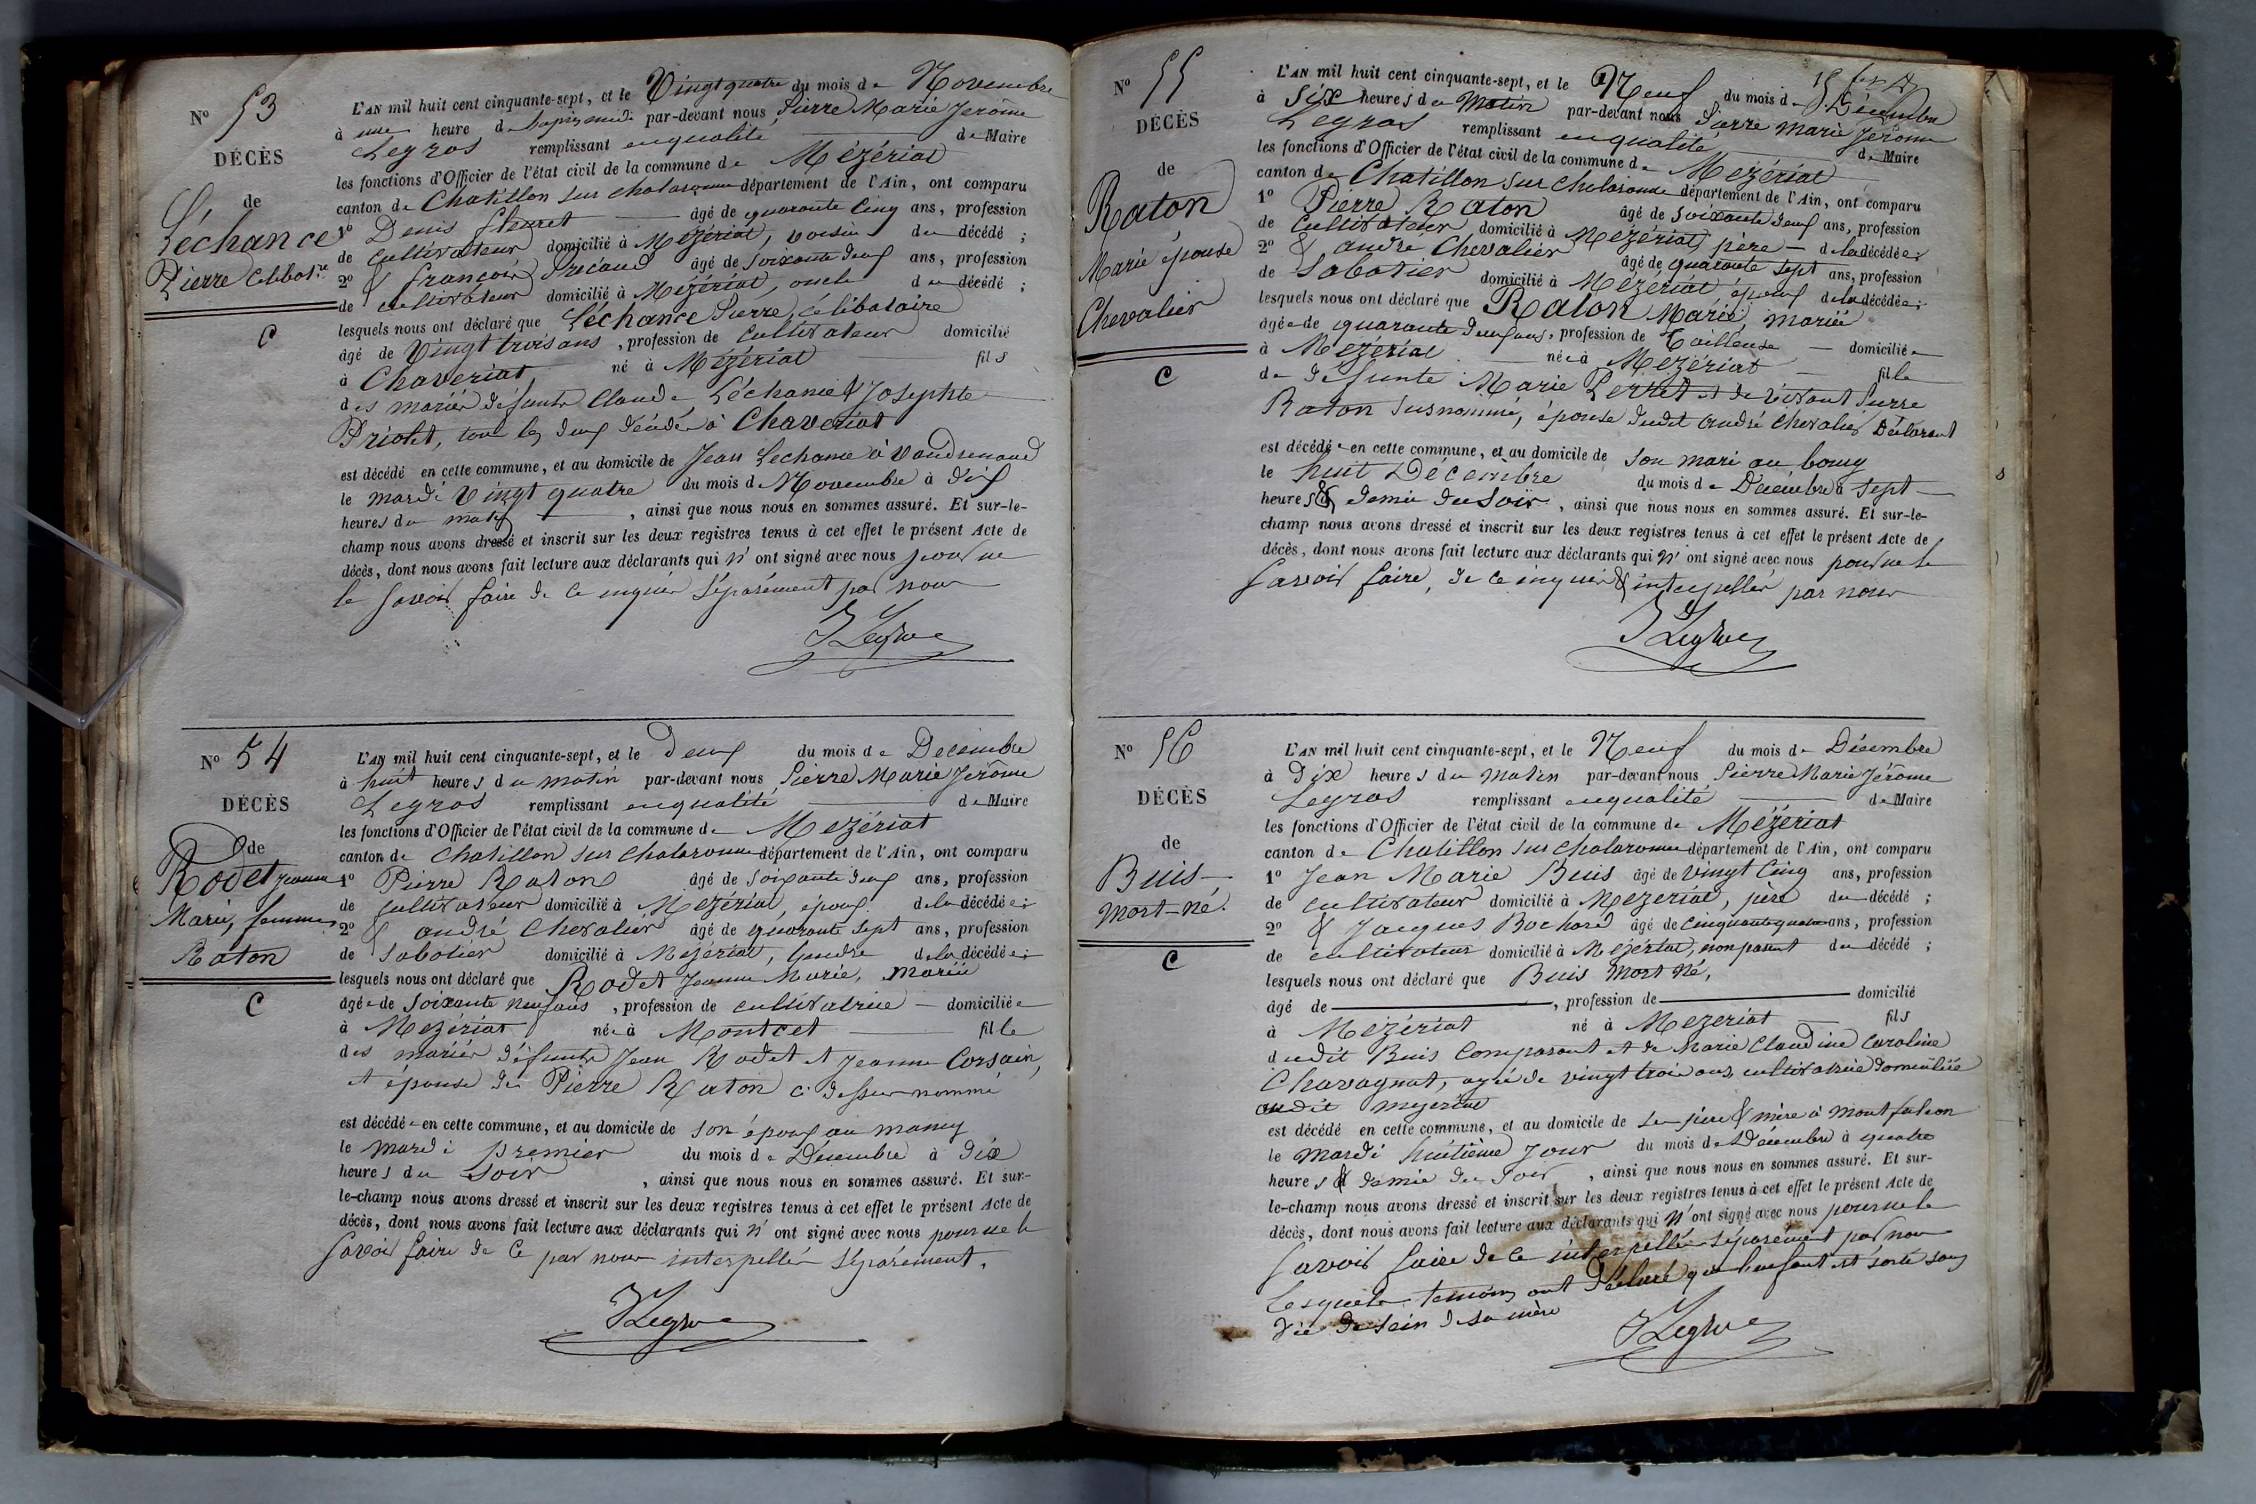 N° 53
DÉCÈS
de
Léchance
Pierre Célibat.re
C
L'AN mil huit cent cinquante-sept, et le Vingt quatre du mois de Novembre
à une heure d par-devant nous Pierre Marie Jerôme
Legros remplissant en qualité de Maire
les fonctions d'Officier de l'état civil de la commune de Mézériat
canton de Chatillon sur Chalaronne département de l'Ain, ont comparu
1° Denis fleuret âgé de quarante Cinq ans, profession
de Cultivateur domicilié à Mézériat, voisin du décédé ;
2° & françois âgé de soixante deux ans, profession
de cultivateur domicilié à Mézériat, oncle du décédé ;
lesquels nous ont déclaré que Léchance Pierre, célibataire
âgé de Vingt trois ans, profession de Cultivateur domicilié
à Chaveriat né à Mézériat fils
des mariés défunts Claude Léchance & Josephte
Priolet, tous les deux décédés à Chaveriat
est décédé en cette commune, et au domicile de Jean Lechance à Vaudrenaud
le mardi Vingt quatre du mois de Novembre à dix
heures du matin, ainsi que nous nous en sommes assuré. Et sur-le-
champ nous avons dressé et inscrit sur les deux registres tenus à cet effet le présent Acte de
décès, dont nous avons fait lecture aux déclarants qui n'ont signé avec nous pour ne
le savoir faire de ce enquis séparément par nous
JLegros
N° 54
DÉCÈS
de
Rodet jeanne
Marie, femme
Raton
C
L'AN mil huit cent cinquante-sept, et le deux du mois de Décembre
à huit heures du matin par-devant nous Pierre Marie Jerôme
Legros remplissant en qualité de Maire
les fonctions d'Officier de l'état civil de la commune de Mezériat
canton de Chatillon sur Chalaronne département de l'Ain, ont comparu
1° Pierre Raton âgé de soixante deux ans, profession
de Cultivateur domicilié à Mézériat, époux de la décédée ;
2° & andré Chevalier âgé de quarante sept ans, profession
de Sabotier domicilié à Mézériat, Gendre de la décédée ;
lesquels nous ont déclaré que Rodet Jeanne Marie, mariée
âgée de soixante neuf ans, profession de cultivatrice domiciliée
à Mezériat née à Montcet fille
des mariés défunts Jean Rodet et Jeanne Corsain,
et épouse de Pierre Raton ci dessus nommé
est décédée en cette commune, et au domicile de son époux au mancy
le mardi premier du mois de Décembre à dix
heures du soir, ainsi que nous nous en sommes assuré. Et sur-
le-champ nous avons dressé et inscrit sur les deux registres tenus à cet effet le présent Acte de
décès, dont nous avons fait lecture aux déclarants qui n'ont signé avec nous pour ne le
savoir faire de ce par nous interpellés séparément.
JLegros
N° 55
DÉCÈS
de
Raton
Marie épouse
Chevalier
C
L'AN mil huit cent cinquante-sept, et le Neuf du mois de Décembre
à Six heures du Matin par-devant nous Pierre Marie Jérôme
Legros remplissant en qualité de Maire
les fonctions d'Officier de l'état civil de la commune de Mézériat
canton de Chatillon sur Chalaronne département de l'Ain, ont comparu
1° Pierre Raton âgé de soixante deux ans, profession
de Cultivateur domicilié à Mézériat père de la décédée ;
2° & andré Chevalier âgé de quarante sept ans, profession
de Sabotier domicilié à Mézériat époux de la décédée ;
lesquels nous ont déclaré que Raton Marie mariée
âgée de quarante deux ans, profession de Tailleuse domiciliée
à Mézériat née à Mézériat fille
de défunte Marie Perret et de vivant Pierre
Raton susnommé, épouse dudit andré Chevalier Déclarant
est décédée en cette commune, et au domicile de son mari au bourg
le huit Décembre du mois de Décembre à sept
heures & demie du soir, ainsi que nous nous en sommes assuré. Et sur-le-
champ nous avons dressé et inscrit sur les deux registres tenus à cet effet le présent Acte de
décès, dont nous avons fait lecture aux déclarants qui n'ont signé avec nous pour ne le
savoir faire, de ce enquis & interpellés par nous
JLegros
N° 56
DÉCÈS
de
Buis
Mort-né.
C
L'AN mil huit cent cinquante-sept, et le Neuf du mois de Décembre
à Dix heures du Matin par-devant nous Pierre Marie Jérôme
Legros remplissant en qualité de Maire
les fonctions d'Officier de l'état civil de la commune de Mézériat
canton de Chatillon sur Chalaronne département de l'Ain, ont comparu
1° Jean Marie Buis âgé de vingt Cinq ans, profession
de cultivateur domicilié à Mezeriat, père du décédé ;
2° & Jacques Bochard âgé de cinquante quatre ans, profession
de cultivateur domicilié à Mézériat, non parent du décédé ;
lesquels nous ont déclaré que Buis Mort Né,
âgé de , profession de domicilié
à Mézériat né à Mezeriat fils
dudit Buis Comparant et de Marie Claudine Caroline
Chavagnat, agée de vingt trois ans, cultivatrice domiciliée
audit mezeriat
est décédé en cette commune, et au domicile de ses père & mère à Montfalcon
le mardi huitième Jour du mois de Décembre à quatre
heures & demie du soir, ainsi que nous nous en sommes assuré. Et sur-
le-champ nous avons dressé et inscrit sur les deux registres tenus à cet effet le présent Acte de
décès, dont nous avons fait lecture aux déclarants qui n'ont signé avec nous pour ne le
savoir faire de ce interpellés séparément par nous
Lesquels témoins ont déclaré que l'enfant est sorti sans
vie du sein de sa mère
JLegros